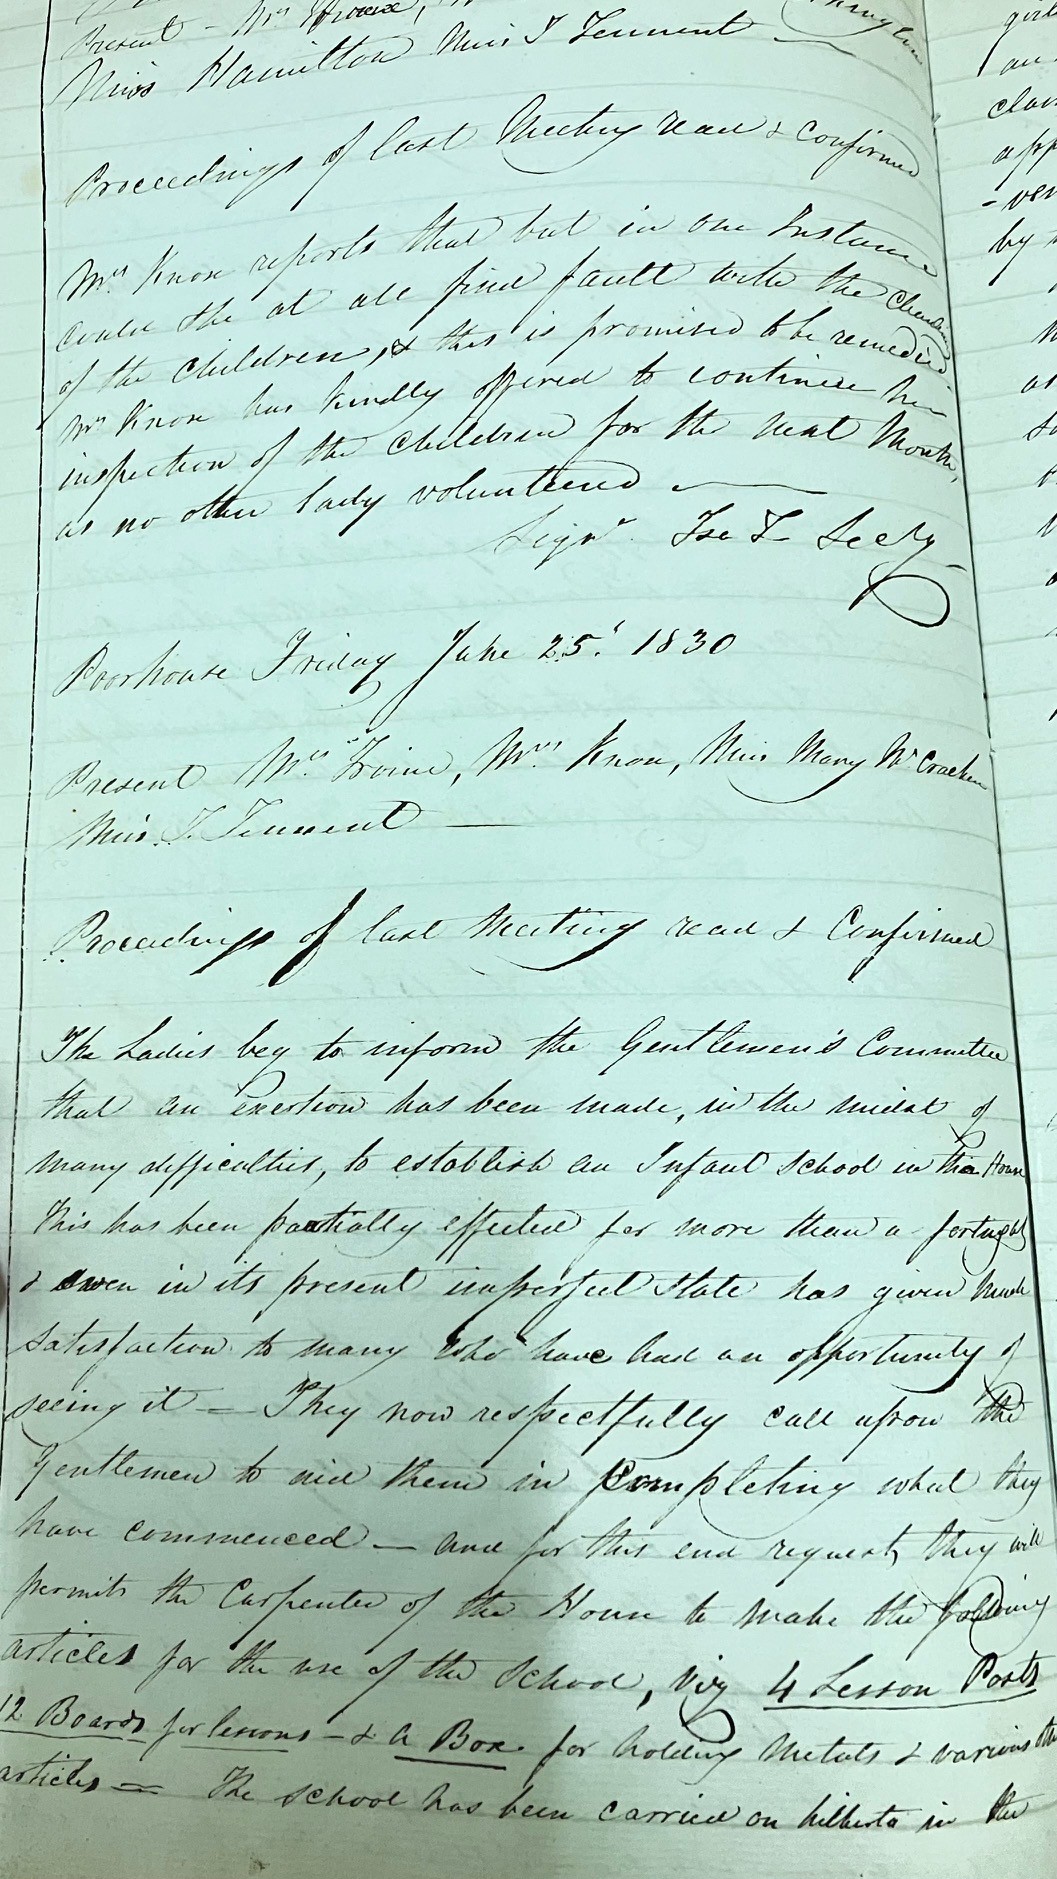 Present - Mrs Irvine,
Miss Hamilton Miss I Tennent
Proceedings of last Meeting read & confirmed
Mrs Knox reports that but in one Instance
could she at all find fault with the
of the children, & this is promised to be remedied.
Mrs Knox has kindly offered to continue her
inspection of the children for the next Month,
as no other lady volunteered
Signd. Isa T
Poorhouse Friday June 25th 1830
Present Mrs. Irvine, Mrs. Knox, Miss Mary McCracken
Miss I. Tennent —
Proceedings of last Meeting read & Confirmed
The Ladies beg to inform the Gentlemen's Committee
that an exertion has been made, in the midst of
many difficulties, to establish an Infant School in this House
This has been partially effected for more than a fortnight
& even in its present imperfect state has given much
satisfaction to many who have had an opportunity of
seeing it — They now respectfully call upon the
Gentlemen to aid them in completing what they
have commenced — and for this end request, they will
permit the Carpenter of the House to make the following
articles for the use of the School, viz 4 Lesson Posts
12 Boards for lessons - & A Box for holding Metals & various other
articles = The school has been carried on hitherto in the
girl
an
clas
app
-ver
by